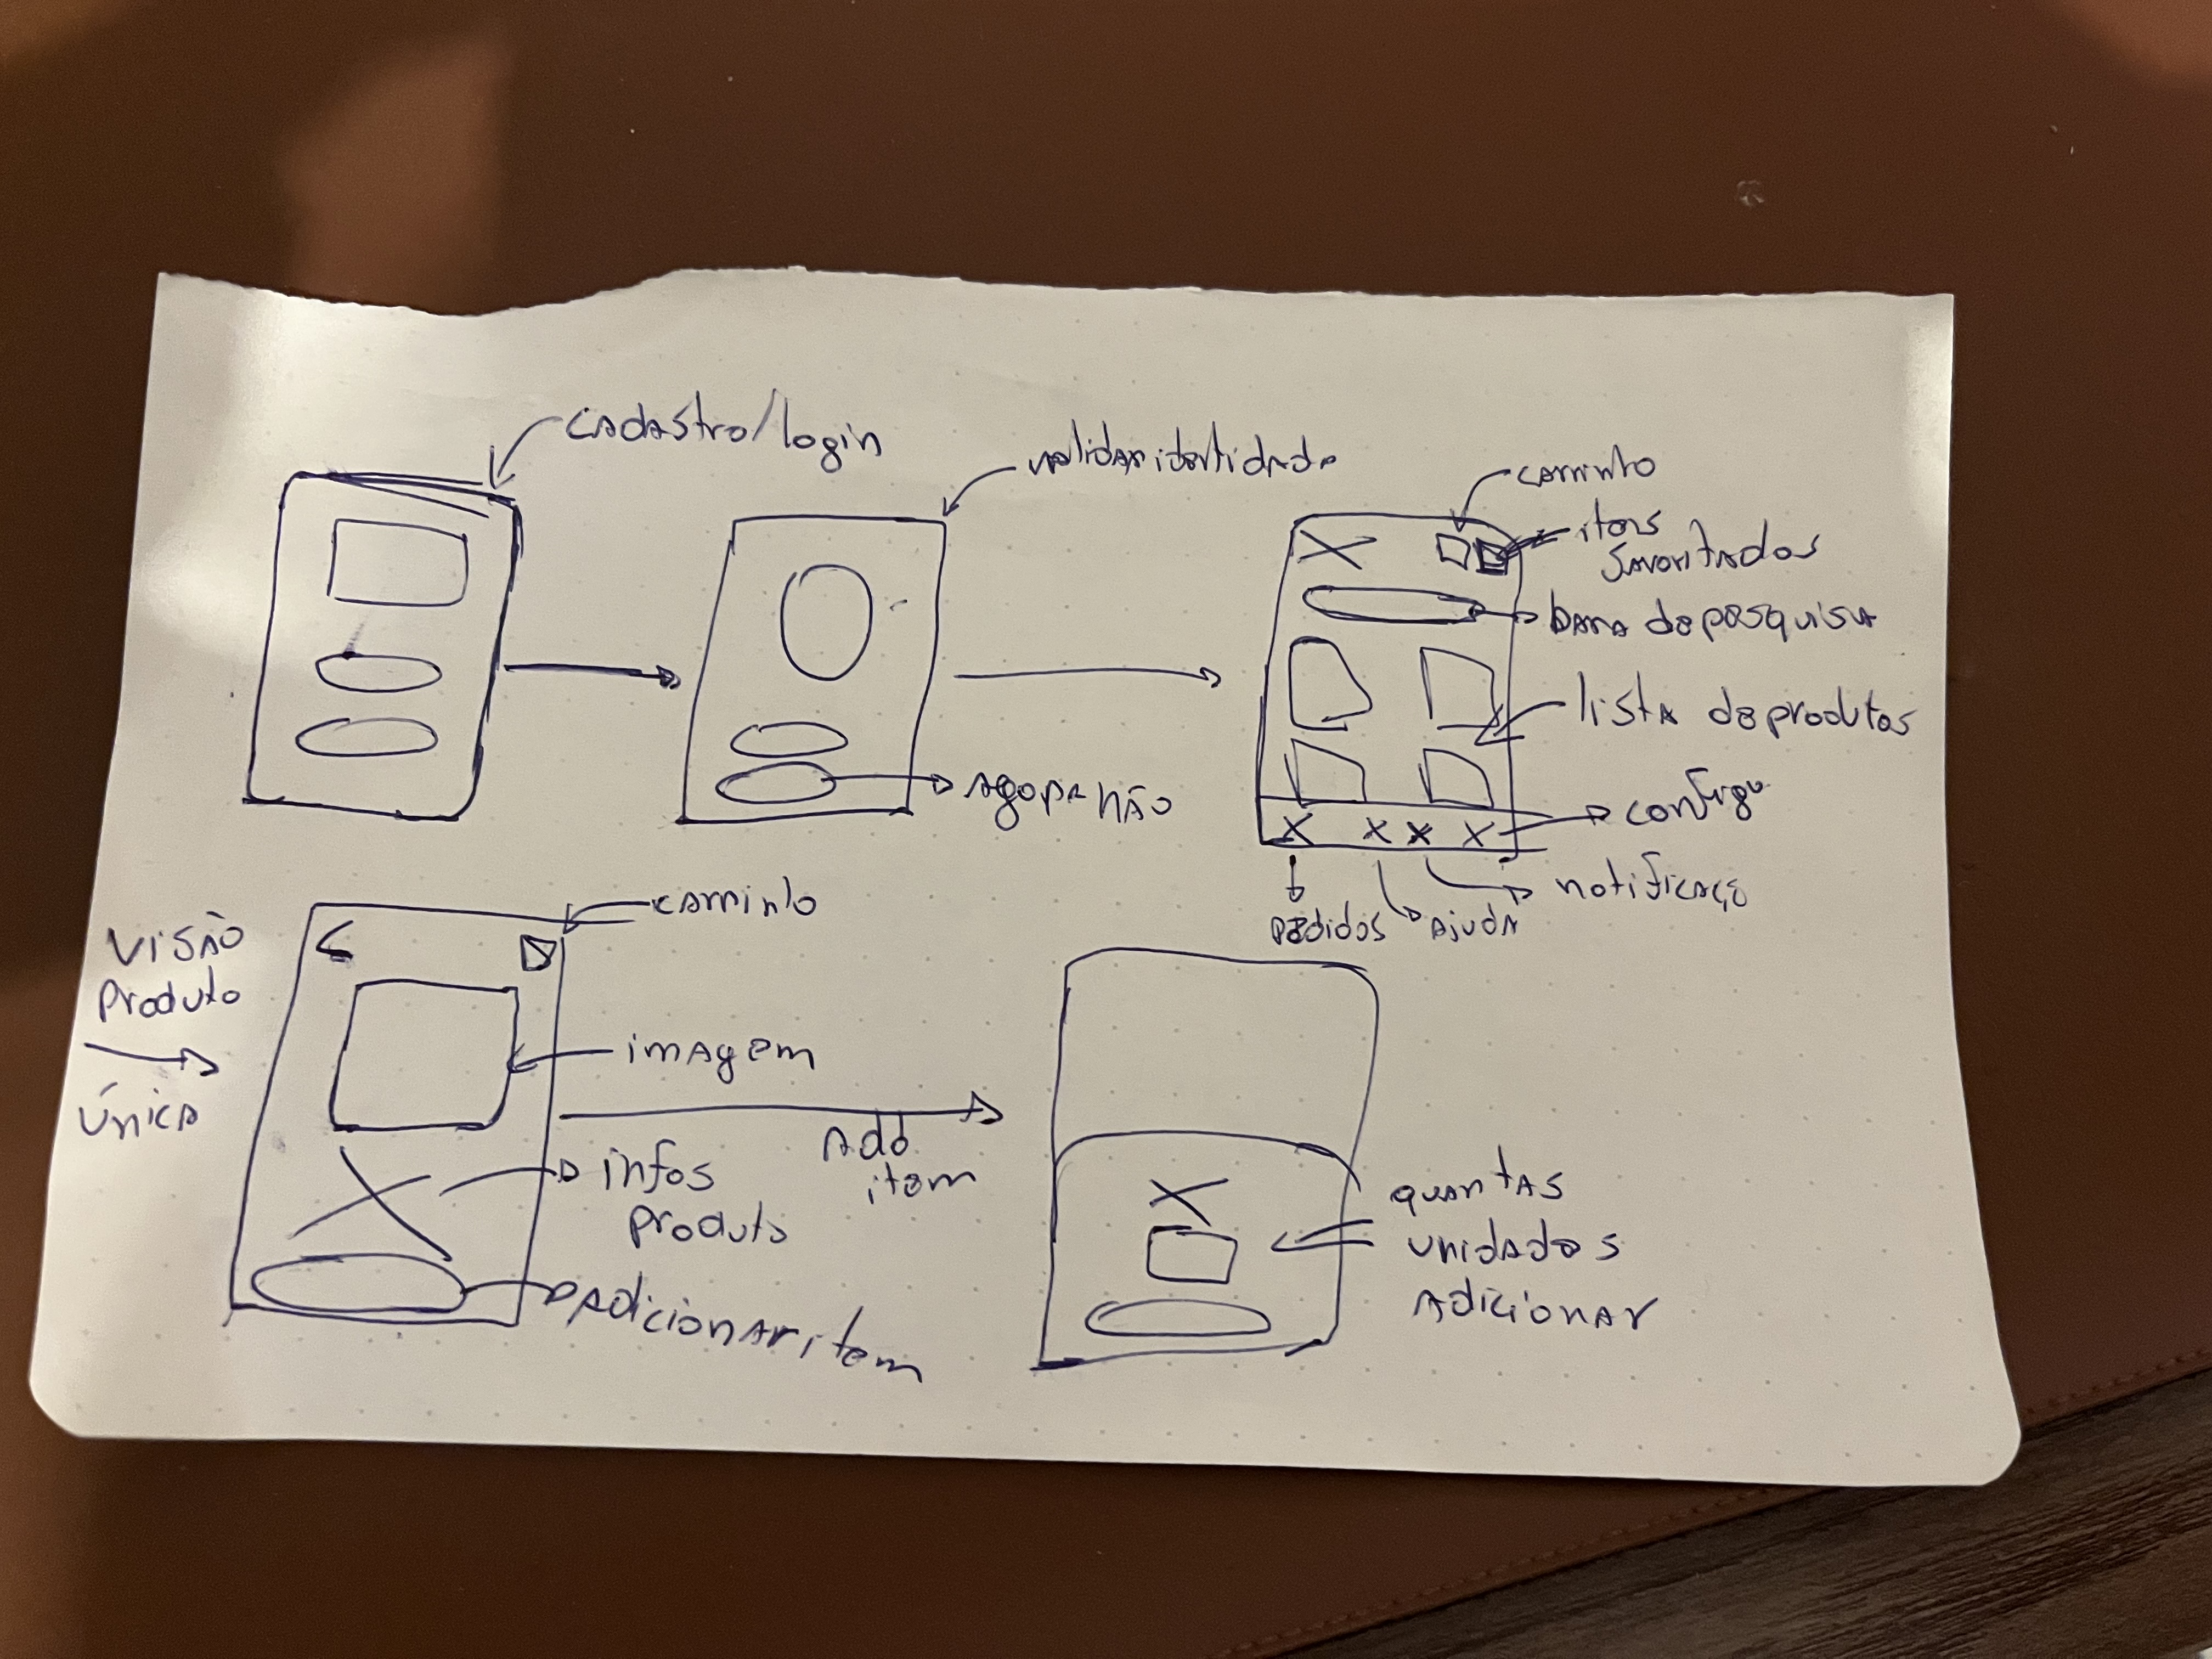 cadastro/login
validar identidade
carrinho
itens
favoritados
barra de pesquisa
lista de produtos
agora não
configu
notificaçõ
pedidos
ajuda
visão
produto
única
carrinho
imagem
add
item
infos
produto
adicionar item
quantas
unidades
adicionar